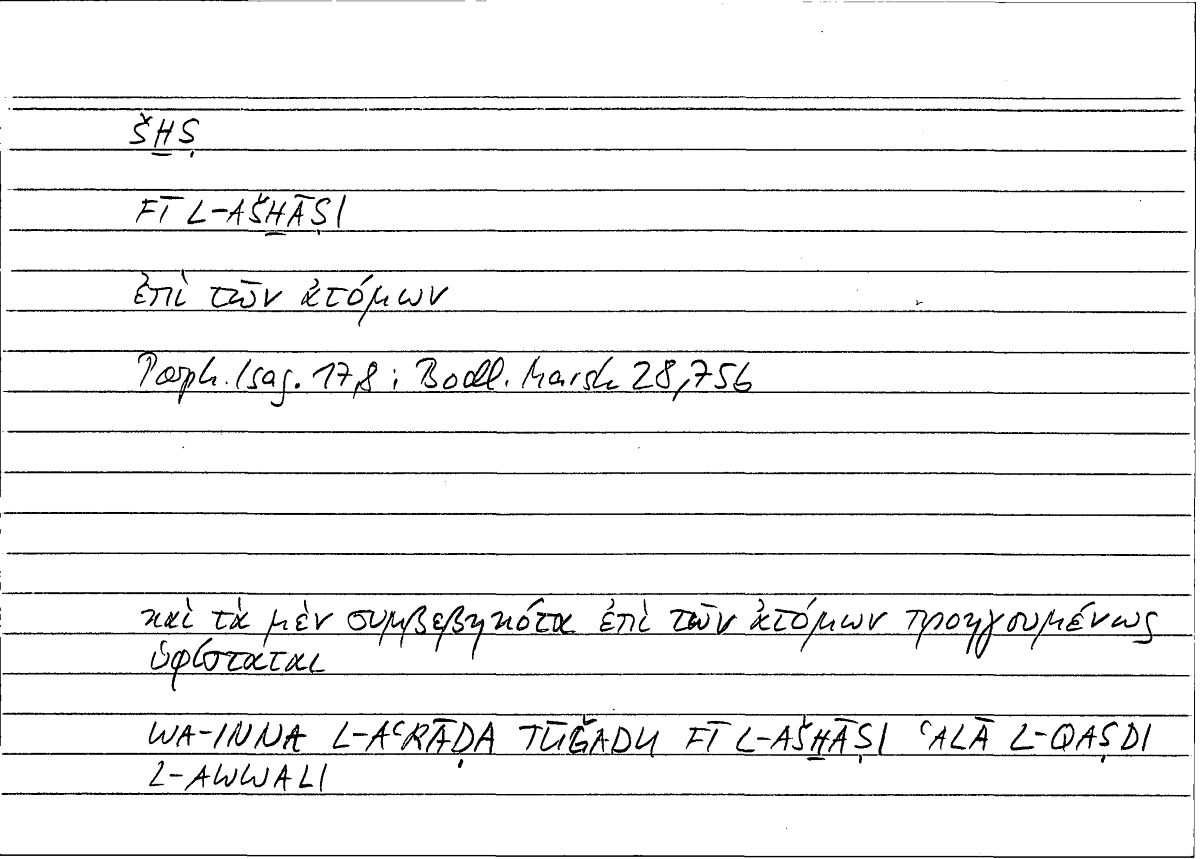 ŠH̱Ṣ
FĪ L-AŠH̱ĀṢI
ἐπὶ τῶν ἀτόμων
Porph. Isag. 17,8 ; Bodl. Marsh 28,756
καὶ τὰ μὲν συμβεβηκότα ἐπὶ τῶν ἀτόμων προηγουμένως
ὑφίσταται
WA-INNA L-AʿRĀḌA TŪǦADU FĪ L-AŠH̱ĀṢI ʿALĀ L-QAṢDI
L-AWWALI